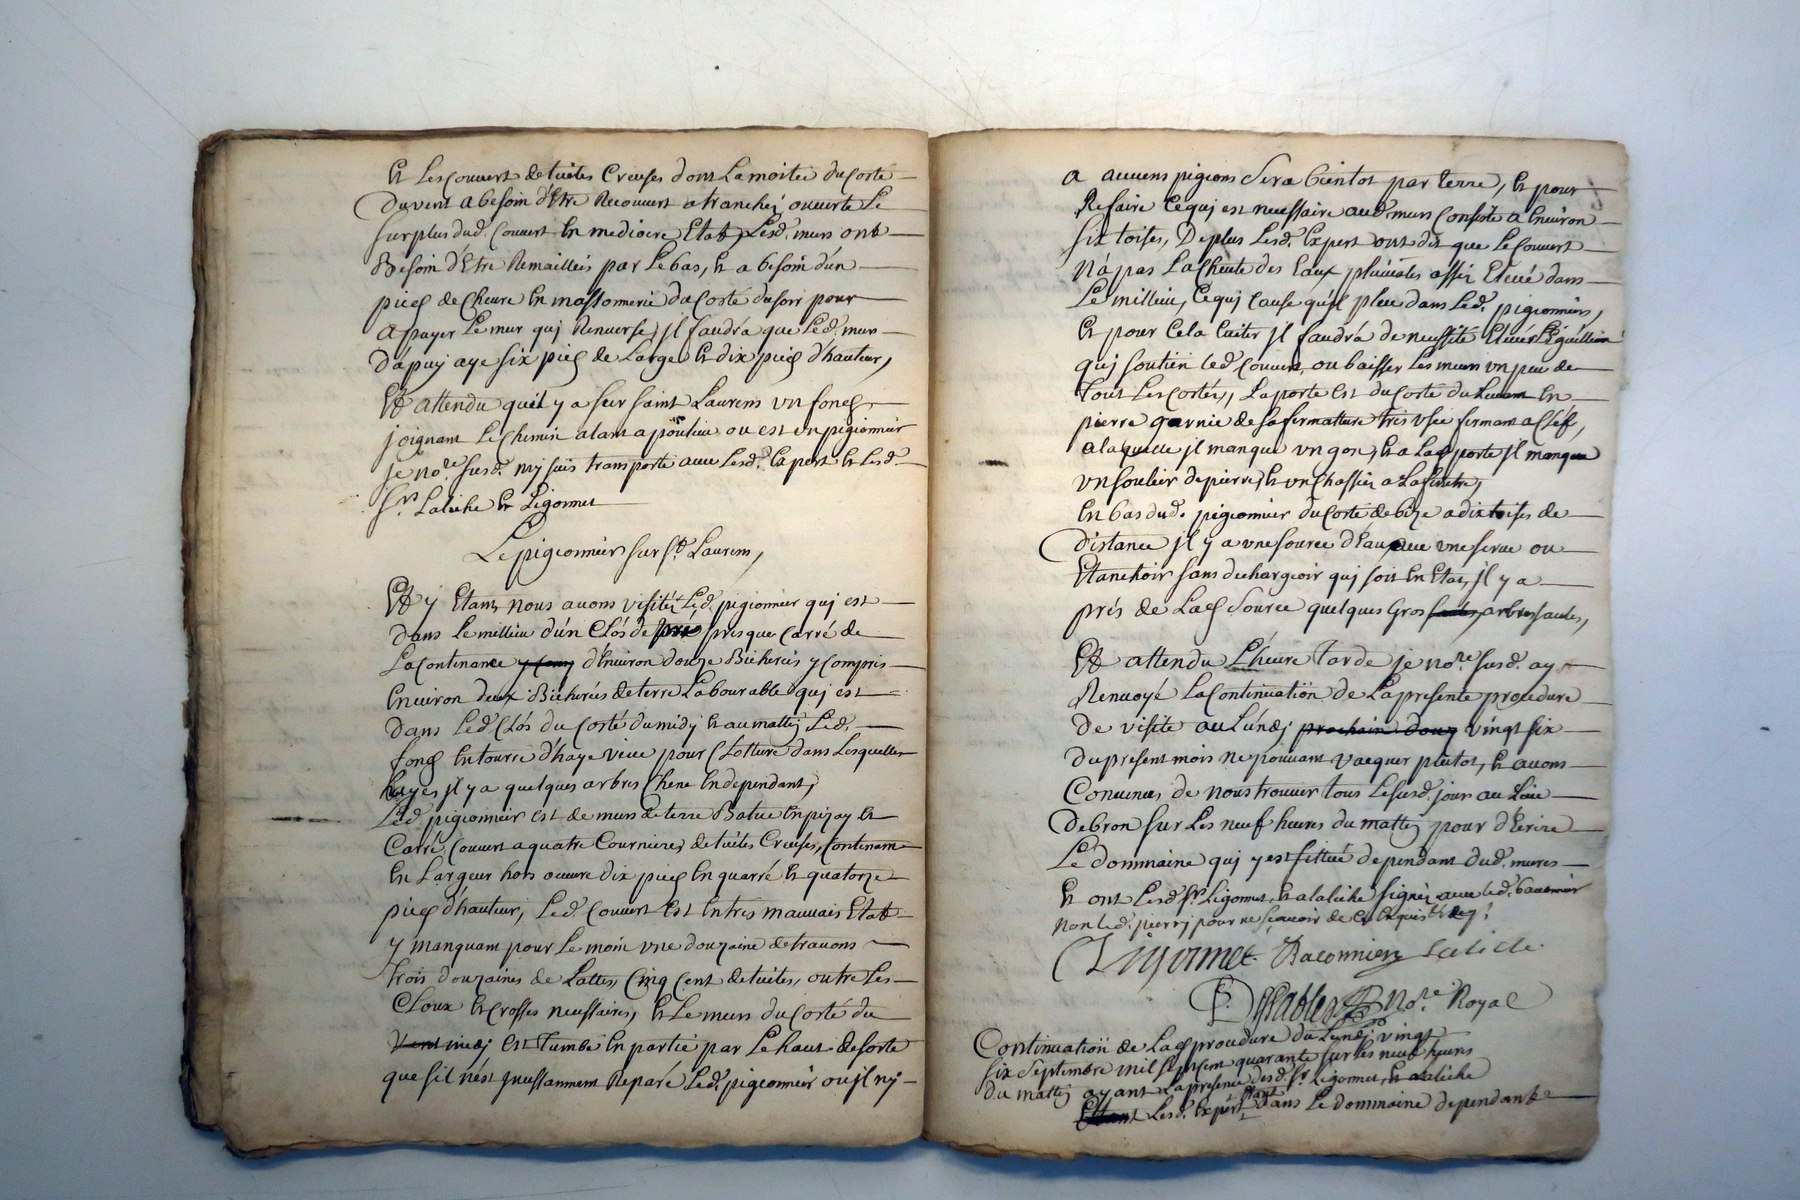 Et Les couvert de tuiles Creuses dont La moitée du Costé
Du vent a besoin d'Etre Recouvert a tranchéé ouverte Le
surplus dud. Couvert En mediocre Etat, Lesd. murs ont
Besoin d'Etre Remailleés par Le bas, Et a besoin d'un
pied de Cheure En massonnerie du Costé du soir pour
apayer Le mur qui Renverse, jl faudra que Led. mur
D'apuy aye six pieds de Large Et dix pieds d'hauteur,
Et attendu quil y a sur saint Laurens un fonds
joignant Le Chemin alant a poulieu ou est un pigionnier
je no.re susd. my suis transporté avec Lesd. Expert Et Lesd.
S.rs Laliche Et Ligonnet
Le pigeonnier sur S.t Laurens,
Et y Etant nous avons visité Led. pigionnier qui est
dans Le millieu d'un Clos de pré presque Carré de
La Contenance d'Environ douze Bicherées y Compris
Environ deux Bicherées de terre Labourable qui est
Dans Led. Clos du Costé du midy Et au mattin Led.
fonds Entourré d'haye vive pour Clotture dans Lesquelles
hayes jl y a quelques arbres Chene En dependant,
Led. pigionnier est de murs de terre Batue En pizay Et
Carré, Couvert a quatre Cournieres de tuiles Creuses, Contenant
En Largeur hors œuvre dix pieds En quarré Et quatorze
pieds d'hauteur, Led. Couvert Est En tres mauvais Etat
y manquant pour Le moin une douzaine de travons
trois douzaines de Lattes, Cinq Cent de tuiles, outre Les
Cloux Et Crosses necessaires, Et Le murs du Costé du
midj Est Tumbé En partie par Le haut de sorte
que sil n'est jncessamment Reparé Led. pigeonnier ou jl n'y
a aucuns pigions sera bientot par terre, Et pour
Refaire Ce qui est necessaire aud. murs Consiste a Environ
six toises, De plus Lesd. Expert ont dit que Le Couvert
N'a pas La Cheute des Eaux pluviales assés Elevé dans
Le millieu, Ce qui Cause qu'jl pleu dans Led. pigionnier,
Et pour Cela Eviter jl faudra de necessité Elever L'Eguillion
qui soutien Led. Couvert, ou baisser Les murs un peu de
Tout Les Costés, La porte Est du Costé du Levant En
pierre garnie de sa fermatture tres usée fermant a Clef,
a laquelle jl manque un gon, Et a Lad. porte jl manque
un soulier de pierre, Et un Chassis a La fenetre,
En bas dud. pigionnier du Costé de bize a dix toises de
distance jl y a une source d'Eau avec une serve ou
Etanchoir sans dechargeoir qui soit En Etat, jl y a
prés de Lad. Source quelques Gros arbres saules,
Et attendu L'heure tarde je no.re susd. ay
Renvoyé La Continuation de La presente procedure
De visite au Lundj prochain douze vingt six
Du present mois ne pouvant vacquer plutot, Et avons
Convenus de nous trouver tous Le susd. jour au Lieu
Debron sur Les neuf heures du mattin pour d'Ecrire
Le Dommaine qui y est sittué dependant dud. mures
Et ont Lesd. S.rs Ligonnet, Et Laliche signés avec Led.
non Led. pierry pour ne sçavoir de Ce Enquis
Ligonnet Raconnier Laliche
No.re Royal
Continuation de Lad. procedure du Lundj vingt
six septembre mil sept cent quarante sur les neuf heures
du mattin ayant La presence desd. S.rs Ligonnet, Et Laliche
Lesd. Expert Etant dans Le dommaine dependant